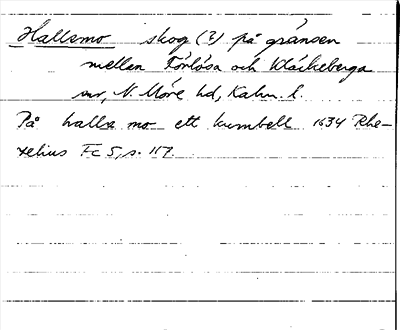 Hallsmo skog (?) på gränsen
mellan Förlösa och Kläckeberga
snr, N. Möre hd, Kalm. l.
På halls mo ett kumbell 1634 Rhe-
zelius Fc 5, s. 117.